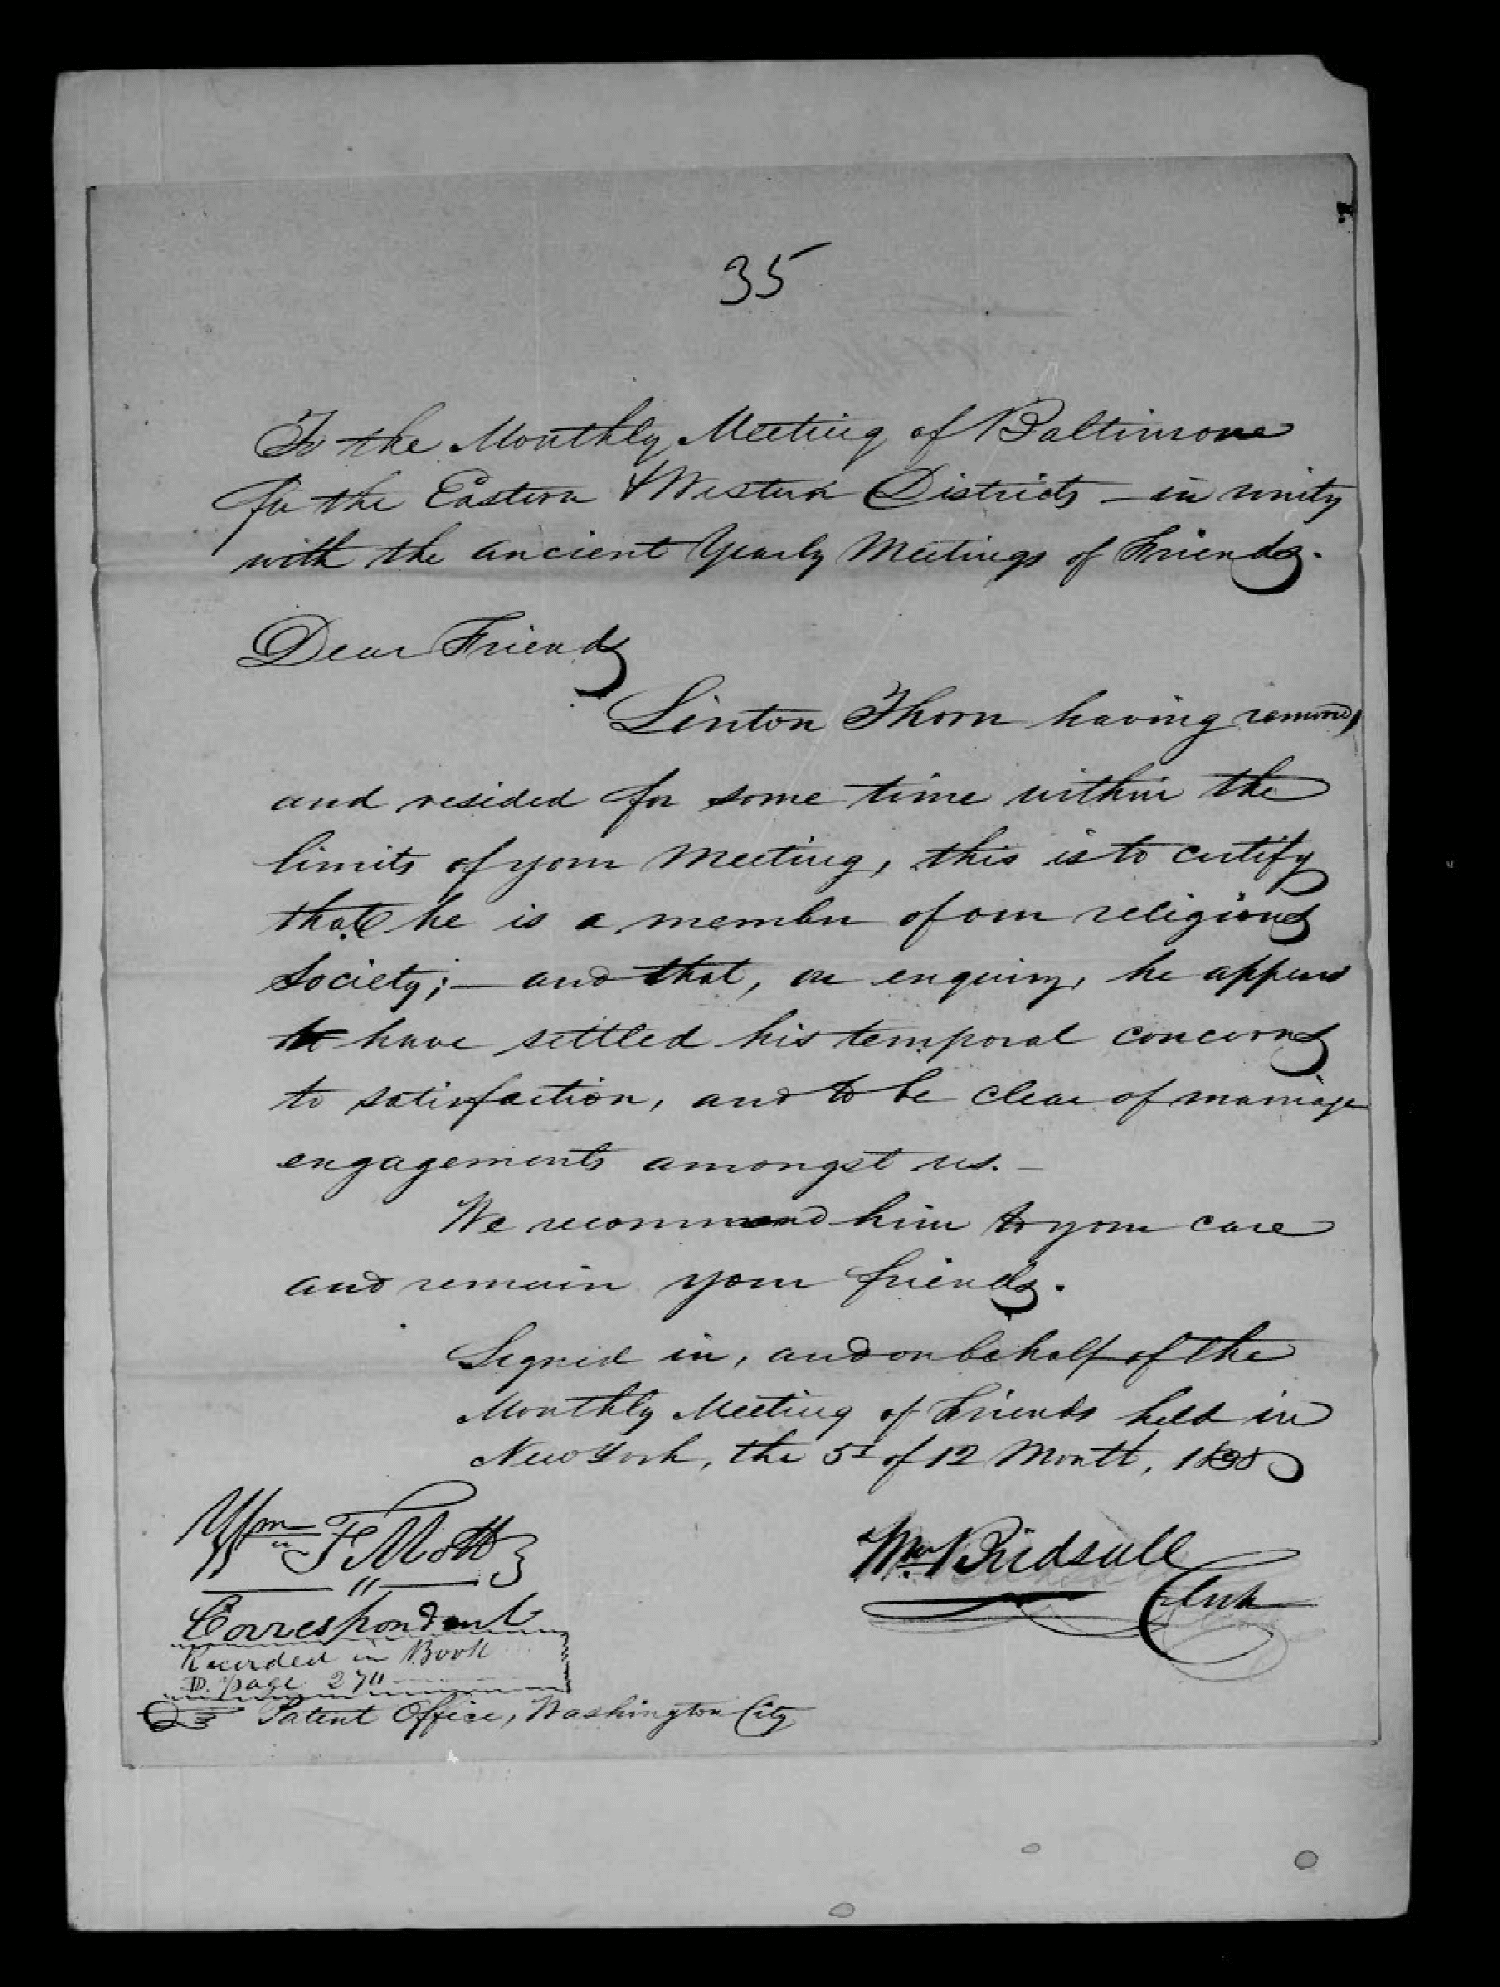 35
To the Monthly Meeting of Baltimore
for the Eastern & Western Districts – in unity
with the ancient Yearly Meetings of Friends.
Dear Friends
Linton Thorn having removed,
and resided for some time within the
limits of your Meeting, this is to certify
that he is a member of our religious
Society; – and that, on enquiry, he appears
to have settled his temporal concerns
to satisfaction, and to be clear of marriage
engagements amongst us. –
We recommend him to your care
and remain your friends.
Signed in, and on behalf of the
Monthly Meeting of Friends held in
New York, the 5th of 12 Month, 1838
Wm F Mott
Correspondent
Wm Birdsall
Clerk
Recorded in Book
D. page 270
Patent Office, Washington City